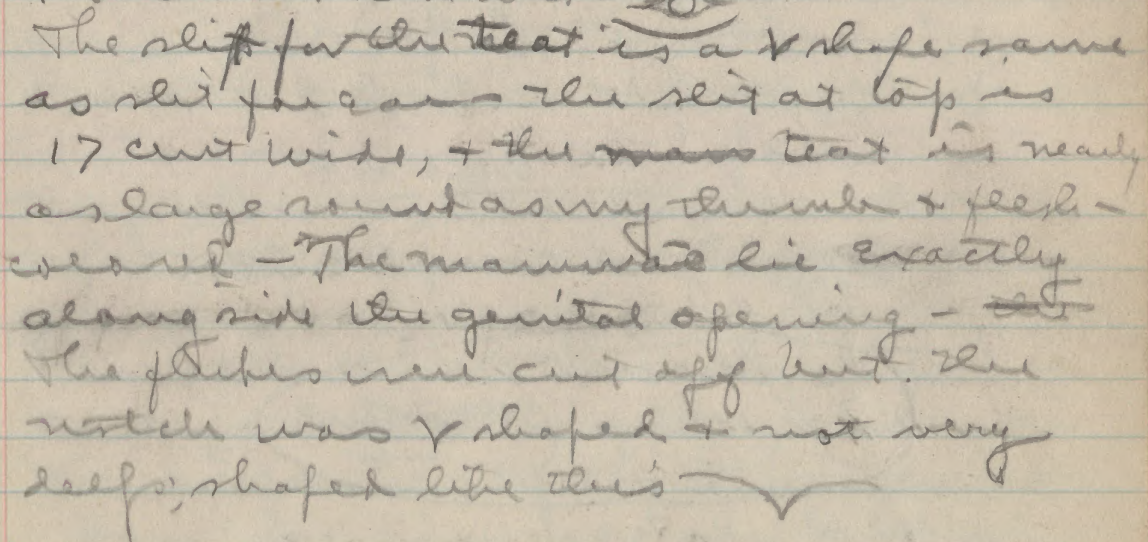 The slit for the teat is a V shape same
as slit for ear - The slit at top is
17 cent wide, + the mam teat is nearly
as large round as my thumb + flesh-
colored - The mammae lie exactly
alongside the genital opening - the
The flukes were cut off but. the
notch was V shaped + not very
deep; shaped like this